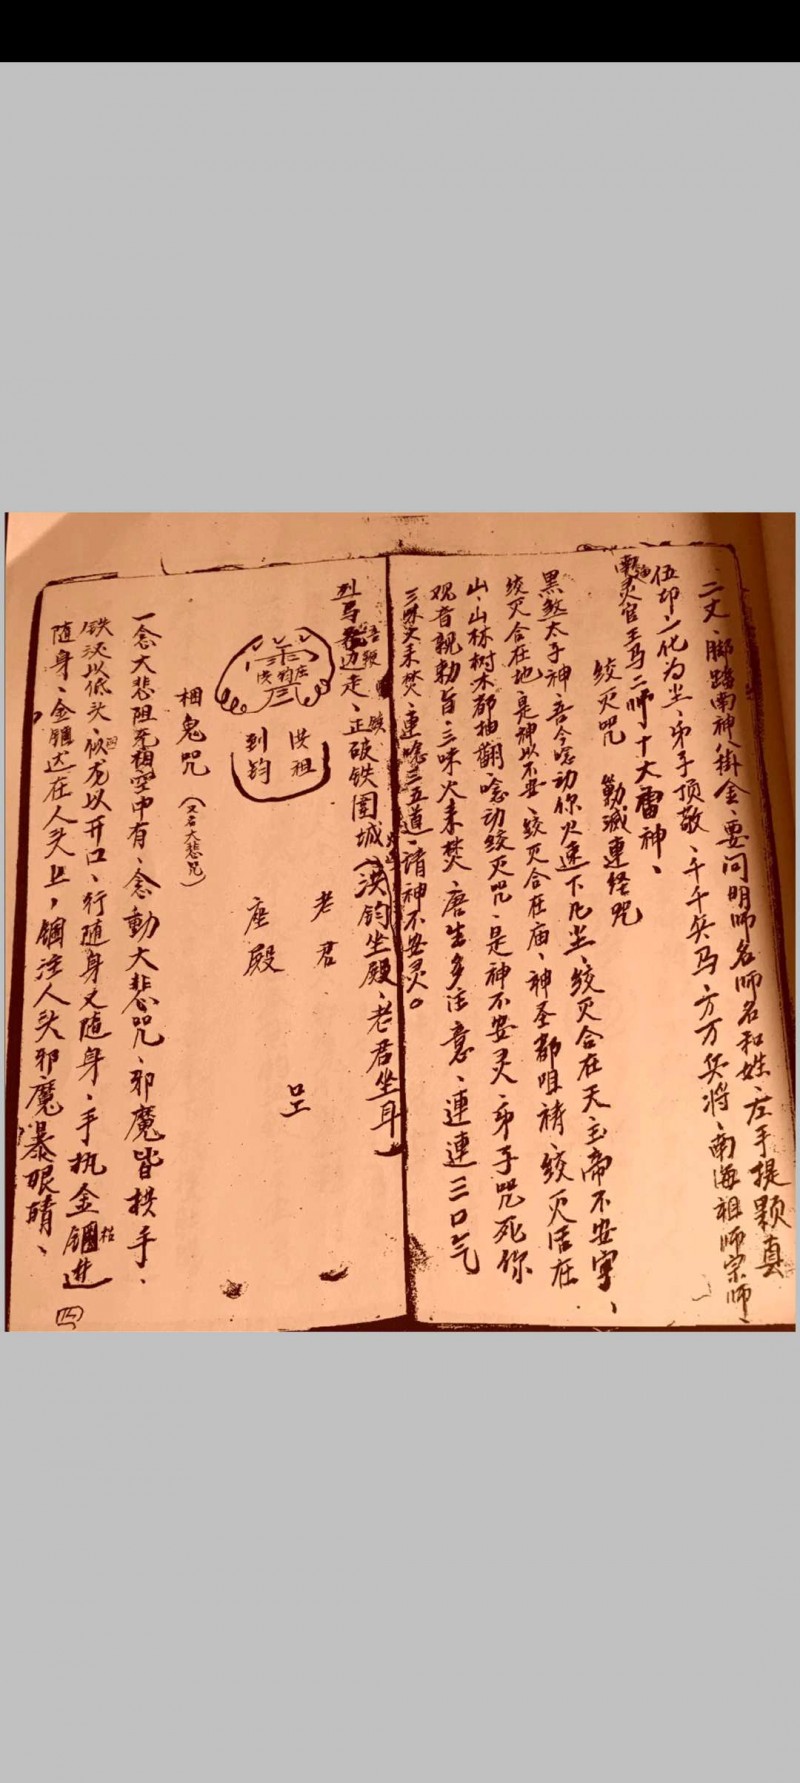 二丈、脚踏南神八掛金、要问明师名师名和姓、左手提顆真
伍印、二化为尘、弟子顶敬、千千兵马、方万兵将、南海祖师宗师、
灵官王马二师、十大雷神、
绞灭咒 勦滅連経咒
黑煞太子神、吾今唸动你、火速下凡尘、绞灭合在天、玉帝不安宁、
绞灭合在地、是神以不安、绞灭合在庙、神圣都咀祷、绞灭活在
山、山林树木都抽翻、唸动绞灭咒、是神不安灵、弟子咒死你
观音親勅旨、三味火来焚、唐生多注意、連連三口气
三味火来焚、連唸三五道、诸神不安灵。
列马邊边走、正破铁围城(洪鈞坐殿、老君坐耳)
洪祖
到鈞
老君
座殿
梱鬼咒(又名大悲咒)
一念大悲阻死、梱空中有、念動大悲咒、邪魔皆拱手、
铁浃以低头、似龙以开口、行随身又随身、手执金鋼进
随身、金鋼达在人头上,鋼注人头邪魔暴眼晴、
四